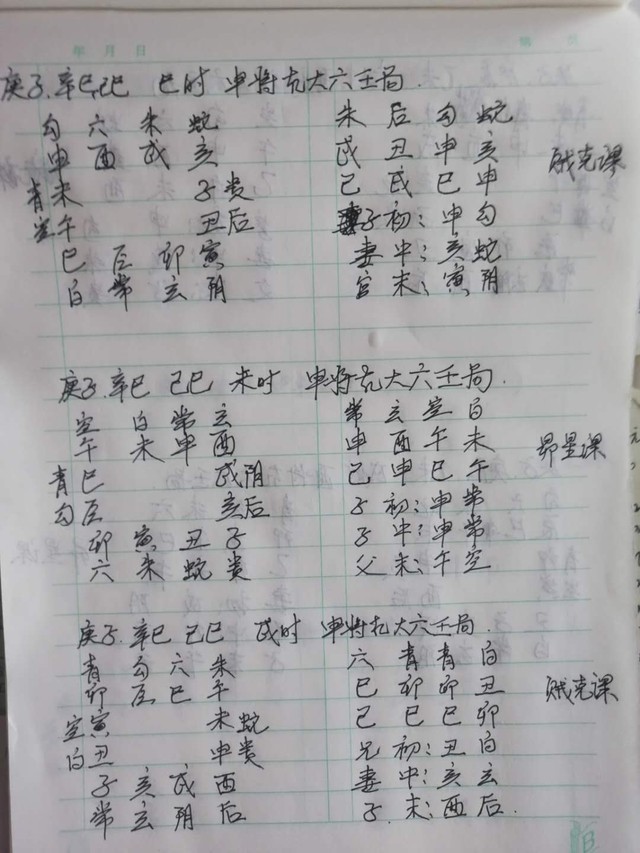 年 月 日
庚子、辛巳己巳 巳时 申将占大六壬局.
勾 六 朱 蛇 朱 后 勾 蛇
申 酉 戌 亥 戌 丑 申 亥 贼克课
青未 子贵 己 戌 巳 申
空午 丑后 子初：申勾
巳 辰 卯 寅 妻中：亥蛇
白 常 玄 阴 官末：寅阴
庚子、辛巳 己巳 未时 申将占大六壬局.
空 白 常 玄 常 玄 空 白
午 未 申 酉 申 酉 午 未 昴星课
青巳 戌阴 己 申 巳 午
勾辰 亥后 子初：申常
卯 寅 丑 子 子中：申常
六 朱 蛇 贵 父末：午空
庚子、辛巳 己巳 戌时 申将占大六壬局.
青 勾 六 朱 六 青 青 白
卯 辰 巳 午 巳 卯 卯 丑 贼克课
空寅 未蛇 己 巳 巳 卯
白丑 申贵 兄初：丑白
子 亥 戌 酉 妻中：亥玄
常 玄 阴 后 子末：酉后.